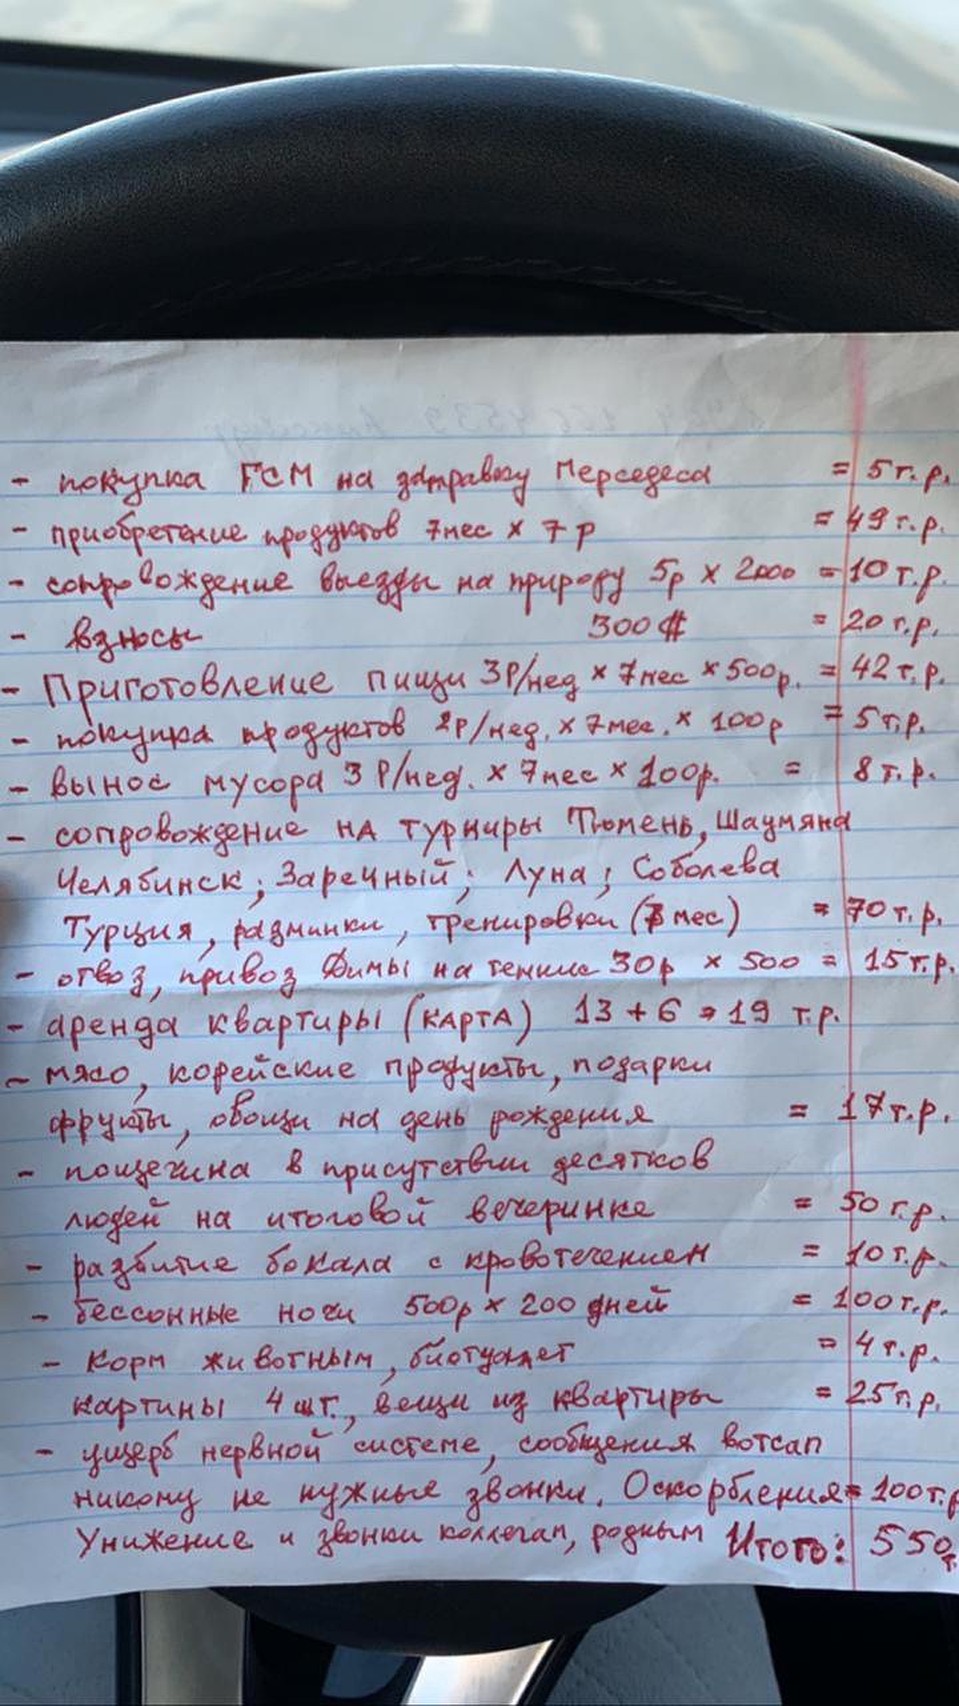 - покупка ГСМ на заправку Мерседеса = 5 т.р.
- приобретение продуктов 7 мес х 7 р = 49 т.р.
- сопровождение выезды на природу 5р х 2000 = 10 т.р.
- взносы 300 $ = 20 т.р.
- Приготовление пищи 3Р/нед х 7 мес х 500р. = 42 т.р.
- покупка продуктов 2Р/нед. х 7 мес. х 100р = 5 т.р.
- вынос мусора 3 Р/нед. х 7 мес х 100р. = 8 т.р.
- сопровождение на турниры Тюмень, Шаумяна
Челябинск; Заречный; Луна; Соболева
Турция, разминки, тренировки (7 мес) = 70 т.р.
- отвоз, привоз Димы на теннис 30р х 500 = 15 т.р.
- аренда квартиры (КАРТА) 13 + 6 = 19 т.р.
- мясо, корейские продукты, подарки
фрукты, овощи на день рождения = 17 т.р.
- пощечина в присутствии десятков
людей на итоговой вечеринке = 50 т.р.
- разбитие бокала с кровотечением = 10 т.р.
- бессонные ночи 500р х 200 дней = 100 т.р.
- корм животным, биотуалет = 4 т.р.
картины 4 шт., вещи из квартиры = 25 т.р.
- ущерб нервной системе, сообщения вотсап
никому не нужные звонки. Оскорбления = 100 т.р
Унижение и звонки коллегам, родным Итого: 550 т.